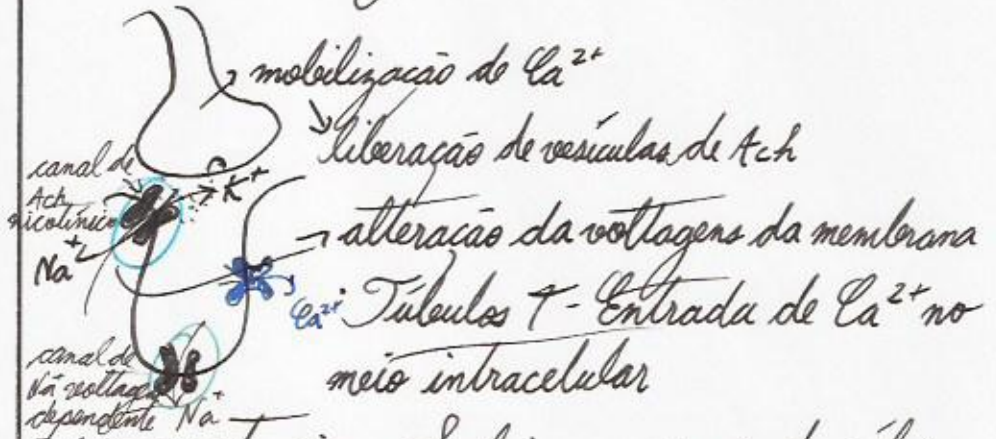 mobilização de Ca²⁺
liberação de vesículas de Ach
canal de
Ach
nicotínico
K⁺
Na⁺
alteração da voltagens da membrana
Ca²⁺
Túbulos T - Entrada de Ca²⁺ no
meio intracelular
canal de
Na⁺ voltagem
dependente
Na⁺